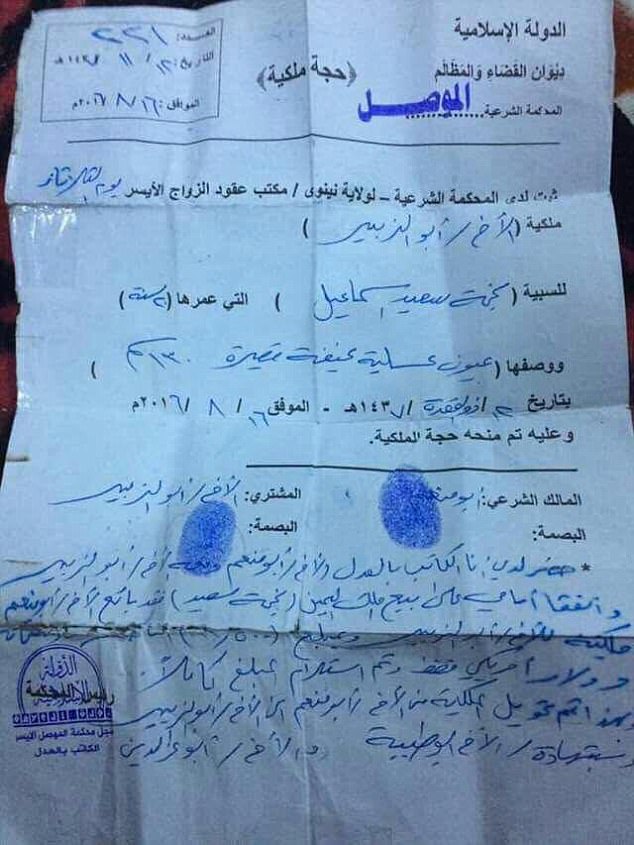 الدولة الإسلامية
ديوان القضاء والمظالم
المحكمة الشرعية الموصل
(حجة ملكية)
العدد: ٢٢١
التاريخ: ١٢ / ١١ / ١٤٣٧هـ
الموافق: ١٦ / ٨ / ٢٠١٦م
ثبت لدى المحكمة الشرعية – لولاية نينوى / مكتب عقود الزواج الأيسر يوم الثلاثاء
ملكية (الأخ / أبو الزبير)
للسبية (نجمة سعيد إسماعيل) التي عمرها (سنة)
ووصفها (عيون عسلية نحيفة قصيرة ١٣٠سم)
بتاريخ / ذو القعدة / ١٤٣٧هـ - الموافق ١٦ / ٨ / ٢٠١٦م
وعليه تم منحه حجة الملكية.
المالك الشرعي: أبو منعم
المشتري: الأخ / أبو الزبير
البصمة:
البصمة:
* حضر لدي أنا الكاتب بالعدل الأخ / أبو منعم ومعه أخ / أبو الزبير
واتفقا أمامي على بيع ملك اليمين (نجمة سعيد) فقد بائع الأخ / أبو منعم
ملكيته للأخ / أبو الزبير وبمبلغ
دولار أمريكي فقط وتم استلام مبلغ كاملاً
وبهذا تم تحويل ملكية من الأخ / أبو منعم إلى الأخ / أبو الزبير
وبشهادة / الأخ والأخ / أبو عز الدين
الدولة الإسلامية
رئيس المحكمة
محكمة الموصل الأيسر
الكاتب بالعدل